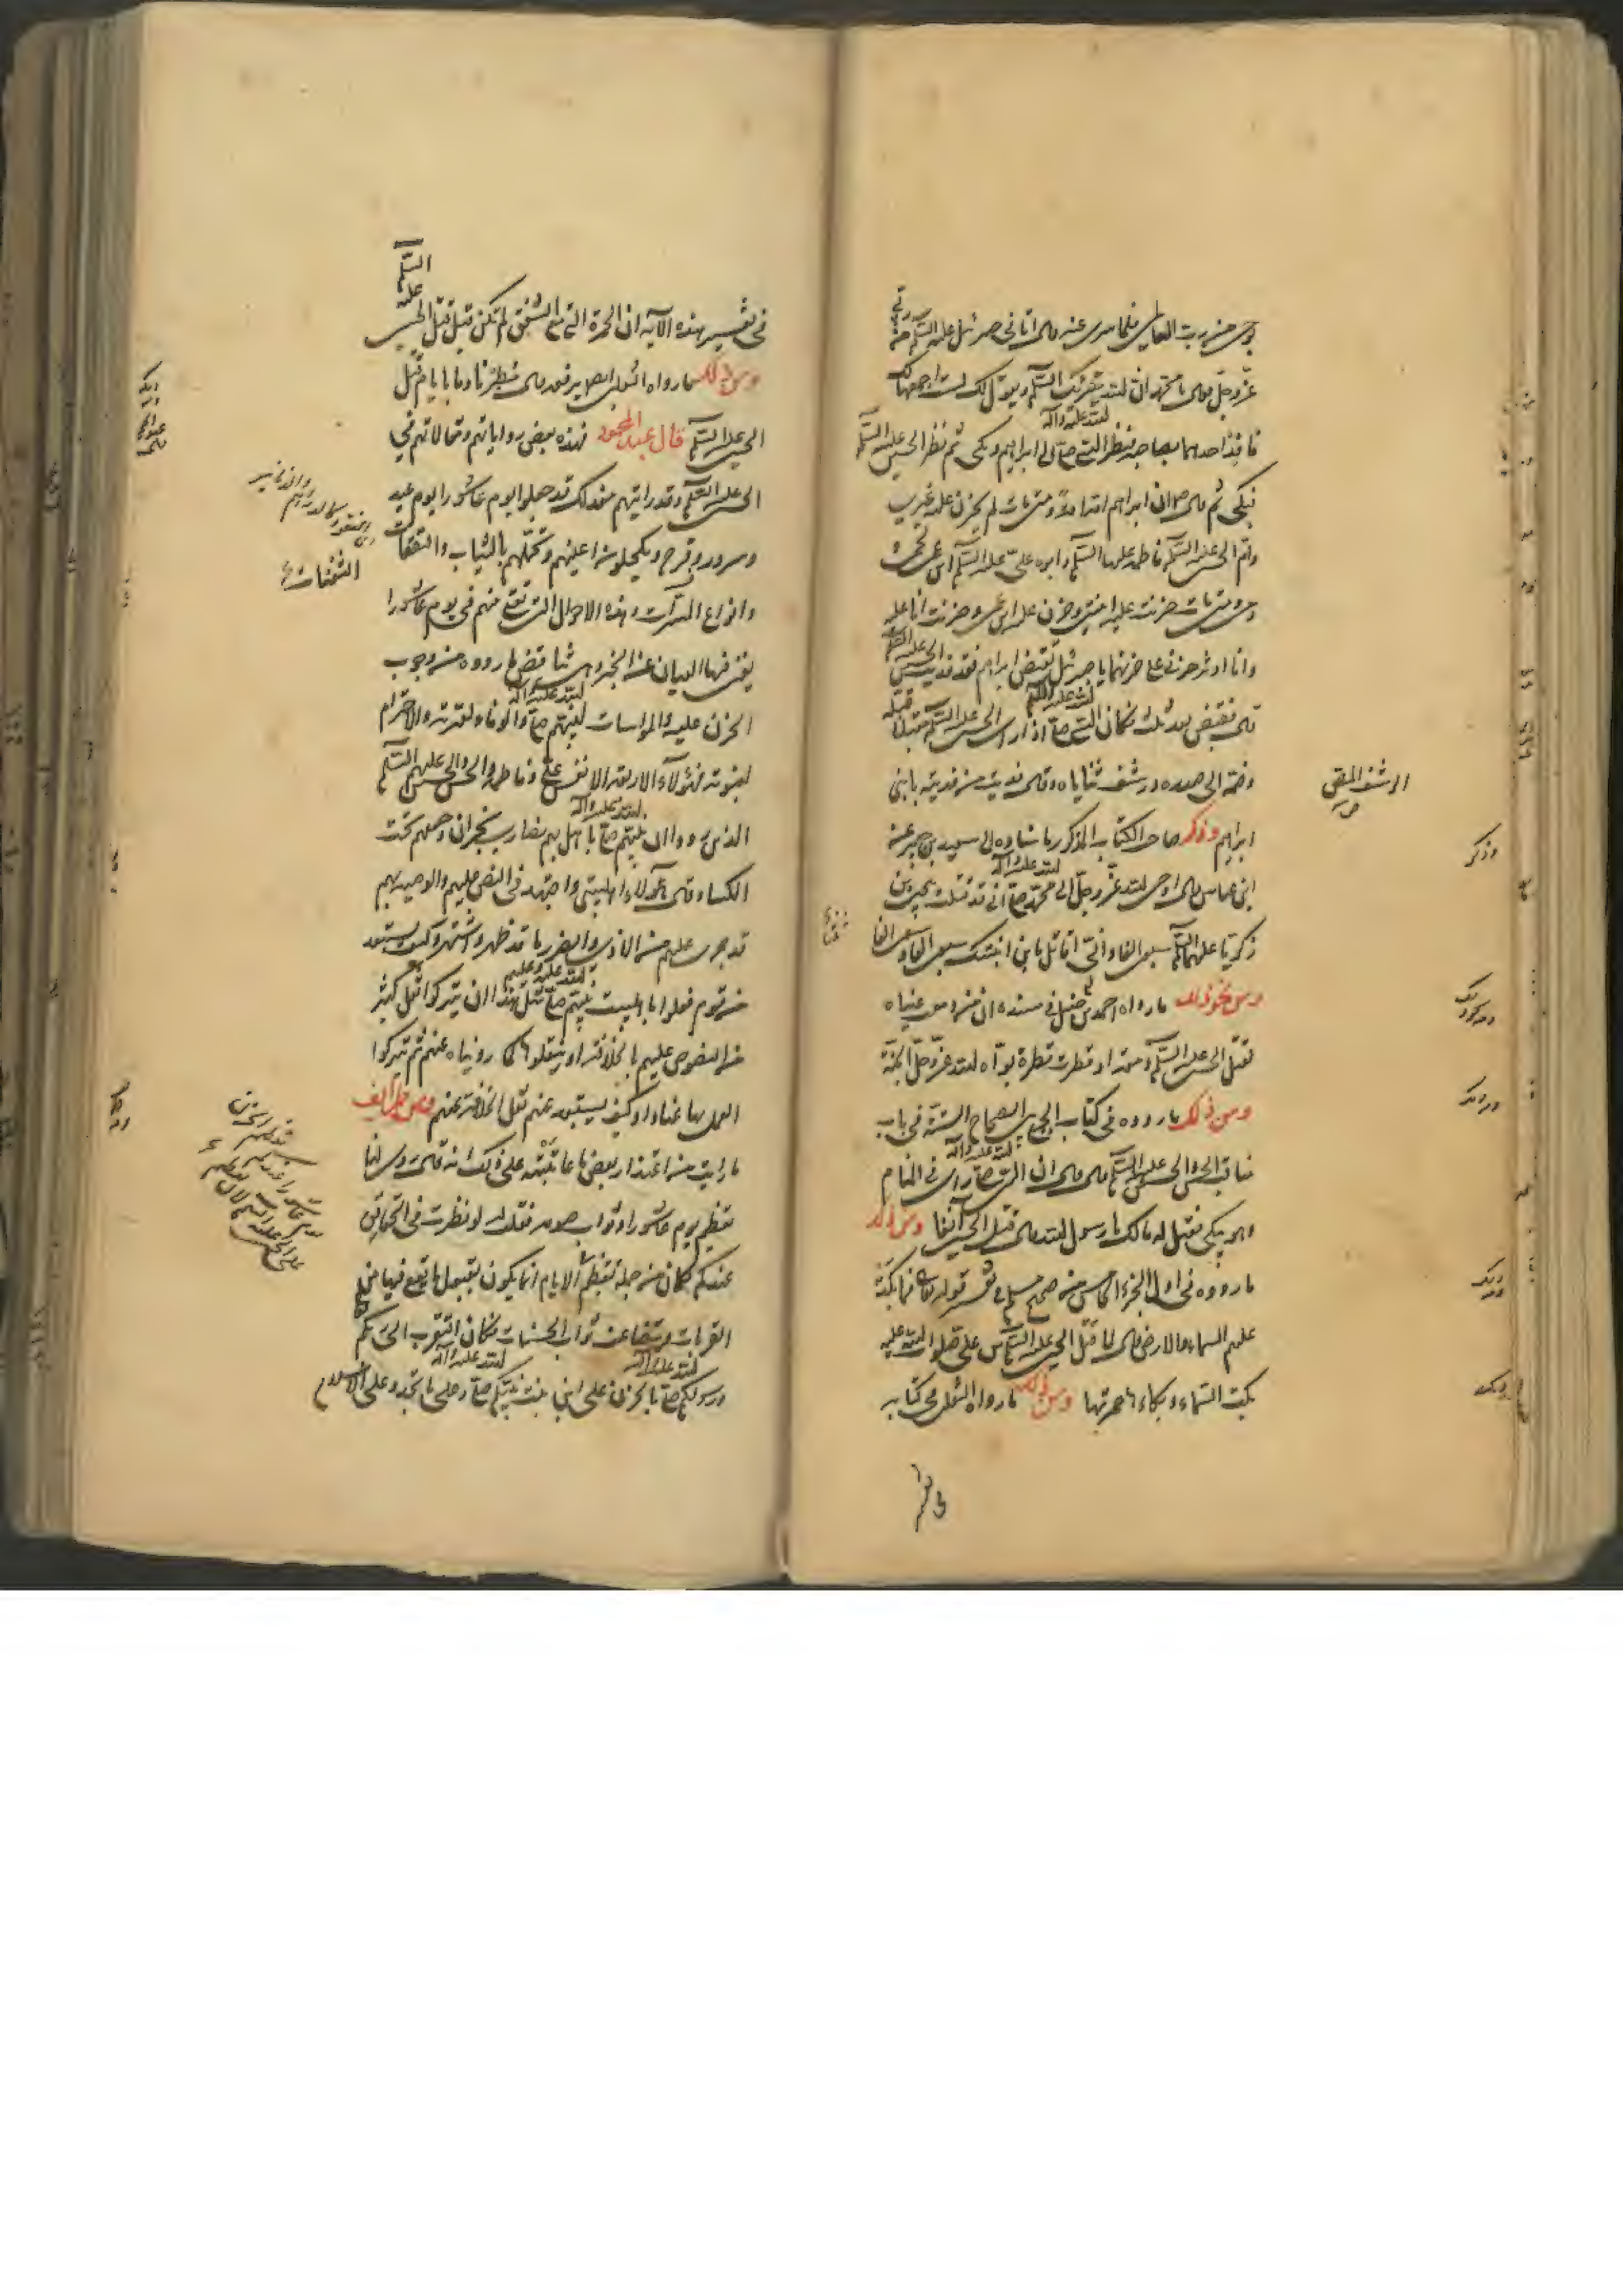 وحى من رب العالمين فلما سرى عنه قال اتانى جبرئيل عليه السلم من ربى
عز وجل فقال يا محمد ان الله يقرئك السلم ويقول لك لست اجمعهما لك
فافد احدهما بصاحبه فنظر النبى صلى الله عليه وآله الى ابراهيم وبكى ثم نظر الى الحسين عليه السلم
فبكى ثم قال ان ابراهيم امه امة ومتى مات لم يحزن عليه غيرى
وام الحسين عليه السلم فاطمة عليها السلم وابوه على عليه السلم ابن عمى لحمى و
دمى ومتى مات حزنت عليه ابنتى وحزن عليه ابن عمى وحزنت انا عليه
وانا اوثر حزنى على حزنهما يا جبرئيل تقبض ابراهيم فقد فديت الحسين عليه السلم
قال فقبض بعد ثلث فكان النبى صلى الله عليه وآله اذا راى الحسين عليه السلم مقبلا قبله
وضمه الى صدره ورشف ثناياه وقال فديت من فديته بابنى
ابراهيم وذكر صاحب الكتاب المذكور باسناده الى سعيد بن جبير عن
ابن عباس قال اوحى الله عز وجل الى محمد صلى الله عليه وآله انى قد قتلت بيحيى بن
زكريا عليهما السلم سبعين الفا وانى اقاتل بابن ابنتك سبعين الفا وسبعين الفا
ومن نحو ذلك ما رواه احمد بن حنبل فى مسنده ان من دمعت عيناه
لقتل الحسين عليه السلم دمعة او قطرت قطرة بوأه الله عز وجل الجنة
ومن ذلك ما رووه فى كتاب الجمع بين الصحاح الستة فى باب
مناقب الحسن والحسين عليهما السلم قال ان النبى صلى الله عليه وآله راى فى المنام
وهو يبكى فقيل له مالك يا رسول الله قال قتل الحسين آنفا ومن ذلك
ما رووه فى اول الجزء الخامس من صحيح مسلم فى تفسير قوله تعالى فما بكت
عليهم السماء والارض قال لما قتل الحسين عليه السلم بن على صلوات الله عليه
بكت السماء وبكاءها حمرتها ومن ذلك ما رواه الثعلبى فى كتابه
فى تفسير
الرشف المص
وذكر
فى تفسير هذه الآية ان الحمرة التى مع الشفق لم تكن قبل قتل الحسين عليه السلم
ومن ذلك ما رواه الثعلبى ايضا يرفعه قال مطرنا دما بايام قتل
الحسين عليه السلم قال عبد المحمود فهذه بعض رواياتهم ومقالاتهم فى
الحسين عليه السلم وقد رايتهم مع ذلك قد جعلوا يوم عاشورا يوم عيد
وسرور وفرح ويكحلون اعينهم وتجملهم بالثياب والنفقات
وانواع المسرات وهذه الاحوال التى تقع منهم فى يوم عاشورا
يغنى فيها العيان عن الخبر وهى تناقض ما رووه من وجوب
الحزن عليه والمواسات لنبيهم صلى الله عليه وآله والوفاء لعترته والاحترام
لنبوته فهؤلآء الاربعة الانفس على وفاطمة والحسن والحسين عليهم السلم
الذين رووا ان نبيهم صلى الله عليه وآله باهل بهم نصارى نجران وجعلهم تحت
الكساء وقال هؤلاء اهل بيتى واجتهد فى النص عليهم والوصية بهم
قد جرى عليهم من الاذى والضرر ما قد ظهر واشتهر وكيف يستبعد
من قوم فعلوا باهل بيت نبيهم صلى الله عليه وعليهم مثل هذا ان يتركوا نقل كثير
من النصوص عليهم بالخلافة او ينقلوها كما رويناه عنهم ثم تركوا
العمل بها عنادا وكيف يستبعد عنهم نقل الخلافة عنهم ومن طرايف
ما رايت من اعتذار بعض ما عاتبته على ذلك انه قال روى لنا
تعظيم يوم عاشورا وثواب صومه فقلت له لو نظرت فى الحقايق
عندكم لكان من جملة تعظيم الايام انما يكون بقبول ما يقع فيها من
القربات وتتضاعف ثواب الحسنات فكان التقرب الى ربكم
ورسولكم صلى الله عليه وآله بالحزن على ابن بنت نبيكم صلى الله عليه وآله وعلى ما تجدد على الاسلام